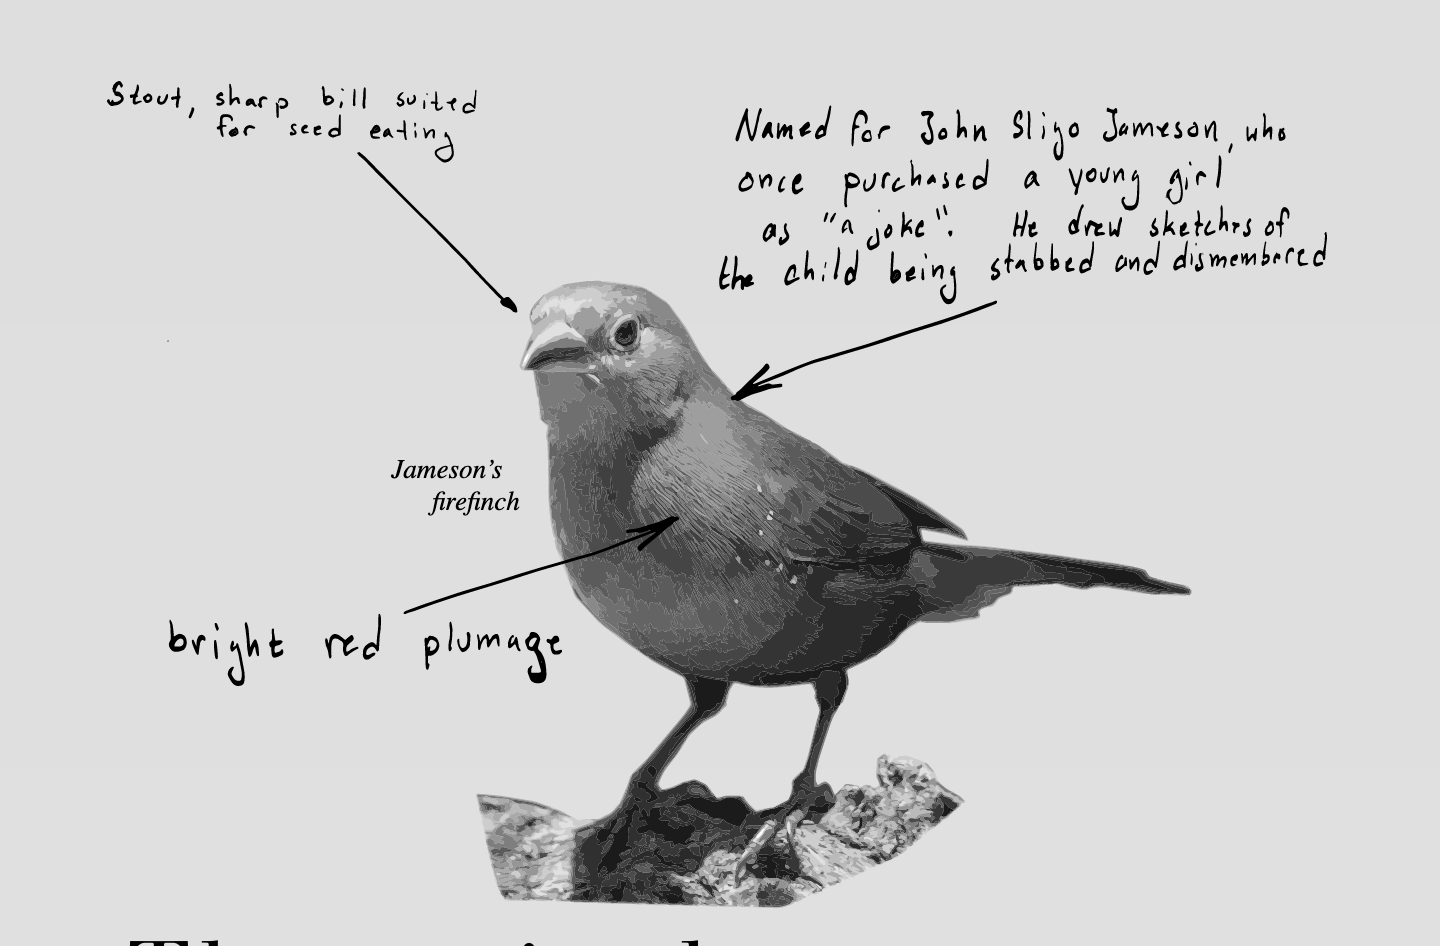 Stout, sharp bill suited
for seed eating
Named for John Sligo Jameson, who
once purchased a young girl
as "a joke". He drew sketches of
the child being stabbed and dismembered
Jameson's
firefinch
bright red plumage